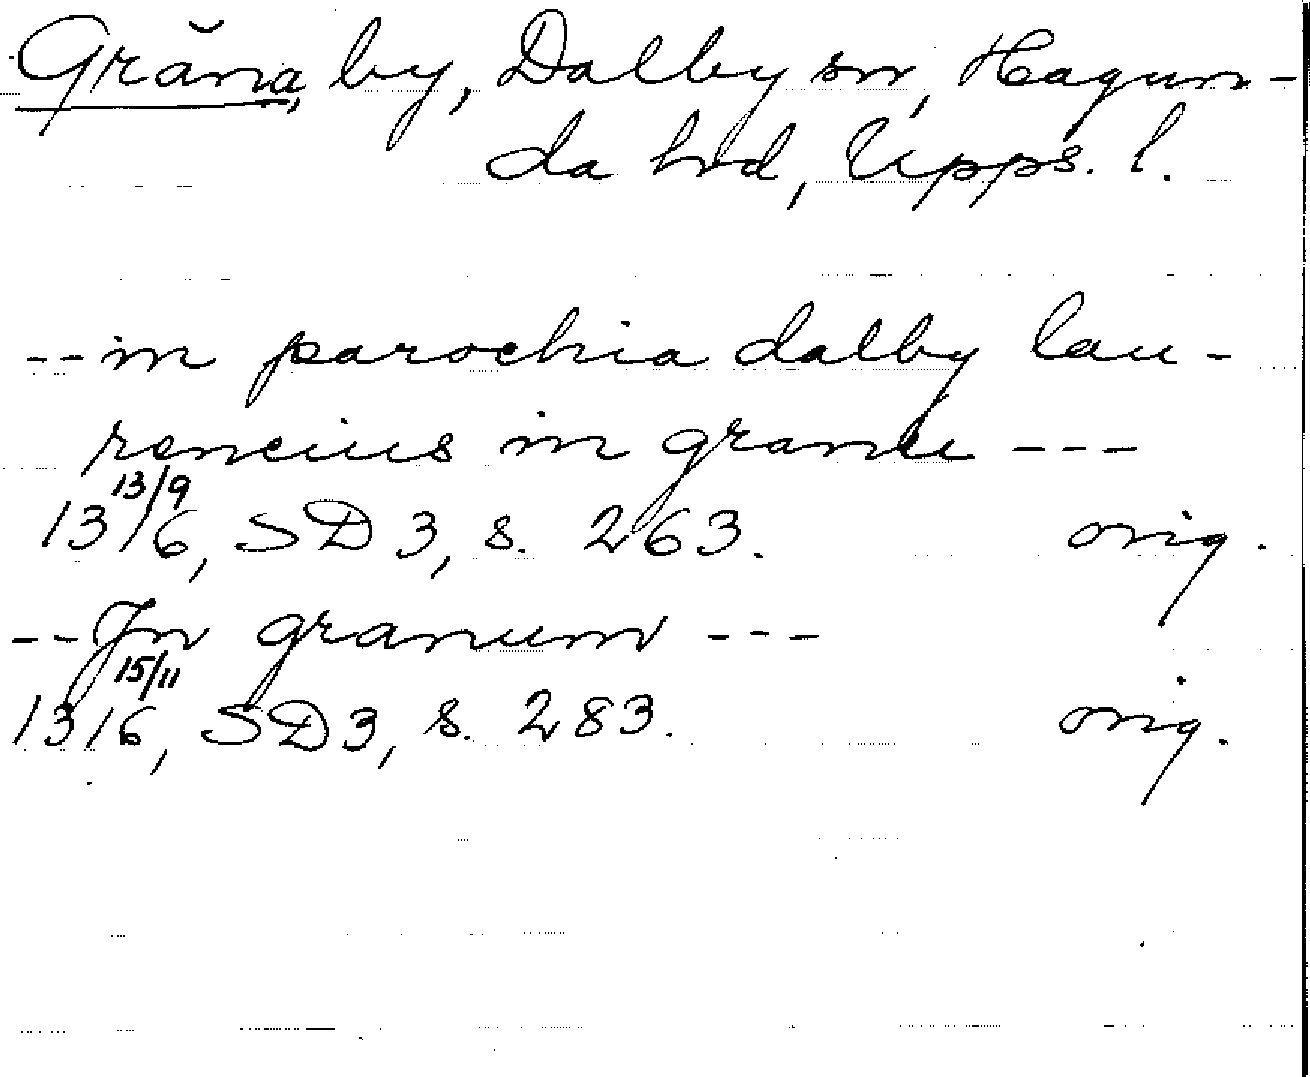 Grăna, by, Dalby sn, Hagun-
da hrd, Upps. l.
--in parochia dalby lau-
rencius in granu ---
13 13/9 16, SD 3, s. 263. orig.
--Jn granum ---
13 15/11 16, SD3, s. 283. orig.